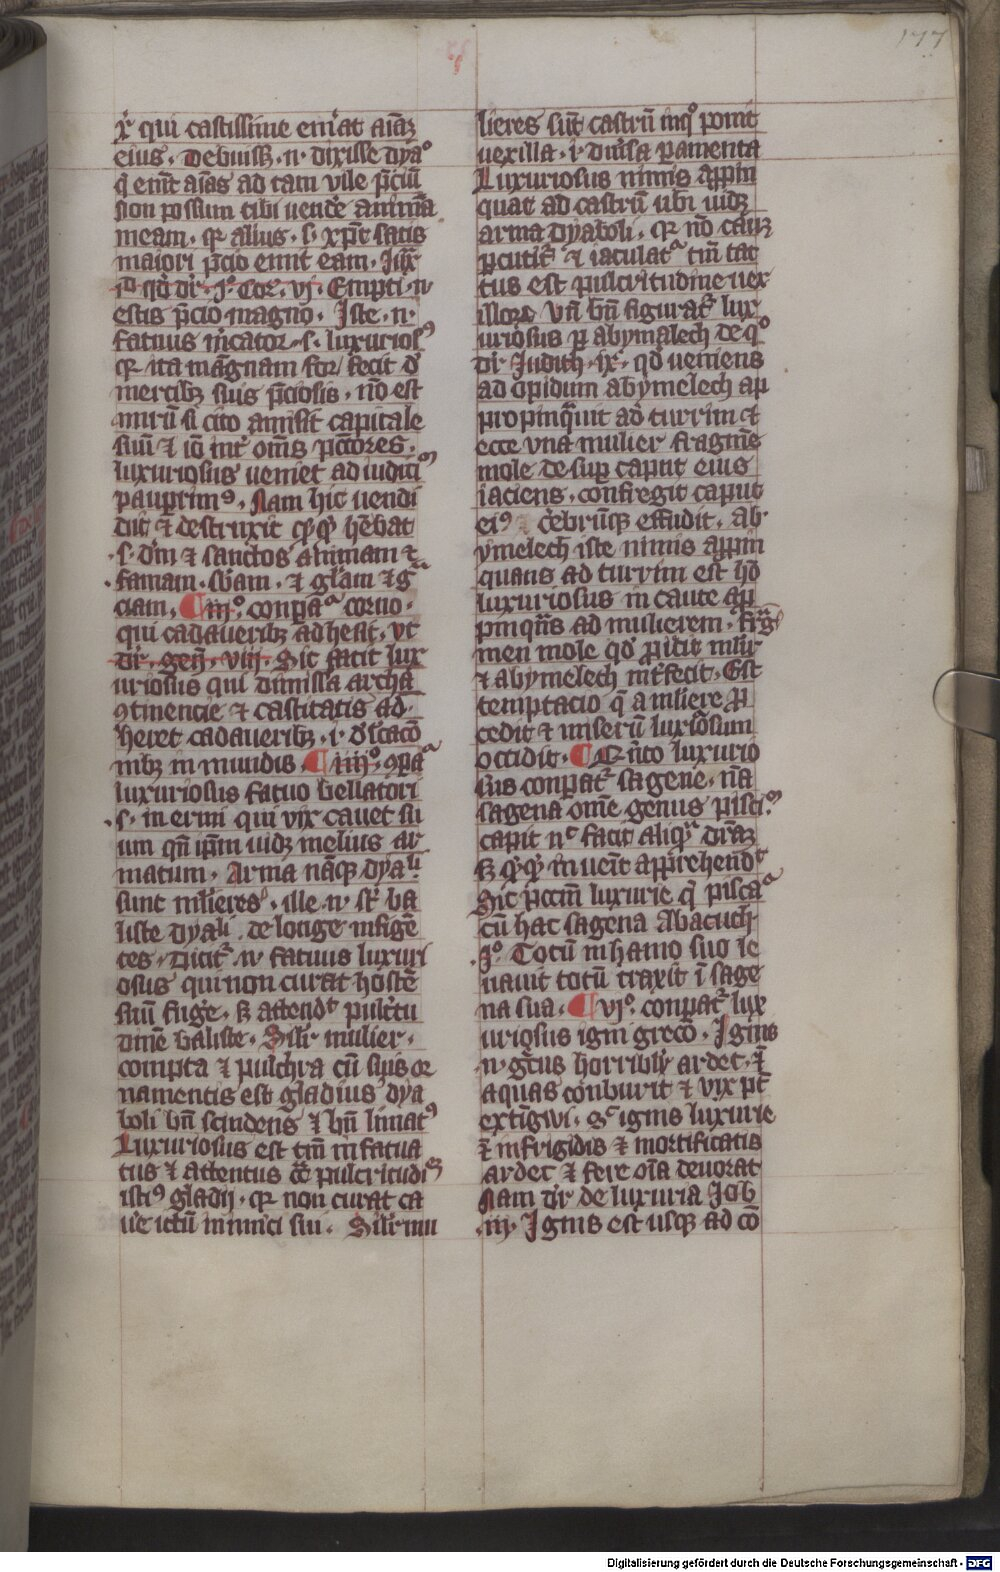 177
xꝰ qui castissime em̄at aīaȝ
eius · debuisȝ · n · dixisse dyaᵒ
q̇ emīt aīas ad tam vile p̄ciū
Non possum tibi uendē animā
meam · qꝛ alius · s · xp̄c satis
maiori p̄cio emit eam · Iux̄
id qd̄ dr̄ · jᵃ · Cor · vj · Empti · n
estis p̄cio magno · Iste · n ·
fatuus m̄cator · s · luxurios⁹
qꝛ ita magnam for fecit d̄
mercibȝ suis p̄ciosis · nō est
mirū si cito amisit capitale
suū ⁊ iō int̄ om̄s pctōres
luxuriosus ueniet ad iudiciᵐ
paup̄rim⁹ · Nam hic uendi
dit ⁊ destruxit qͥqͥ hēbat
· s · dm̄ ⁊ sanctos animam ⁊
· famam · suam · ⁊ gl̄am ⁊ gͣ
ciam · ¶ iijᵒ · conpaͬ coruo ·
qui cadaueribȝ adhesit · vt
dr̄ · gen̄ · viij · Sic facit lux
uriosus qui dimissa archa
ꝯtinencie ⁊ castitatis ad
heret cadaueribȝ · i · d̄lc̄acō
nibȝ in mundis · ¶ iiijᵒ · ꝯpaͬ
luxuriosus fatuo bellatori
· s · in ermi qui vix cauet su
um qn̄ ip̄m uidȝ melius ar
matum · Arma nāqȝ dyaˡⁱ
sunt ml̄ieres · ille · n · st̄ ba
liste dyaˡⁱ · de longe insigē
tes · Dicit̄ · n · fatuus luxuri
osus qui non curat hostē
suū fugē · sȝ attend̄t pulcͥtu
dinē baliste · Sil̄r mulier ·
compta ⁊ pulchra cū suis or
namentis est gladius dya
boli bn̄ scindens ⁊ bn̄ limat⁹
Luxuriosus est tm̄ infatua
tus ⁊ attentus de pulcritudiᵉ
isti⁹ gladij · qꝛ non curat ca
ue ictū inimici sui · Sil̄r mu
lieres sūt castrū inqͦ ponit
uexilla · i · diūsa pamenta
Luxuriosus nimis appin
quat ad castrū ubi uidȝ
arma dyaboli · qꝛ nō cauȝ
pcutit̄ ⁊ iaculatͬ tm̄ tac
tus est pulcritudine uex
illorꝝ vn̄ bn̄ figurat̄ lux
uriosus p abymalech de qͦ
dr̄ Iudicū · ix · qd̄ ueniens
ad opidum abymelech ap
propinquit ad turrim et
ecce vna mulier fragmē
mole de sup captit eius
iaciens · confregit caput
ei⁹ ⁊ cēbrūqȝ effudit · ab
ymelech iste nimis appin
quans ad turrim est hō
luxuriosus in caute ap
pinqn̄s ad mulierem · frag
men mole qd̄ p̄icit ml̄ir
⁊ abymelech int̄fecit · Est
temptacio q̄ a mliere p
cedit ⁊ miserū luxͥosum
occidit · ¶ Qͥnto luxurio
sus conpat̄ sagene · nā
sagena om̄e genus pisciᵐ
capit nᶜ facit aliqͣ dr̄aȝ
sȝ qͥqͥ inuēit app̄rehendᵗ
Sic pccm̄ luxurie qͥ piscaͬ
cū hac sagena Abacuch
· jᵒ · Totū in hamo suo le
nauit totū traxit ī sage
na sua · ¶ vjᵒ · conpat̄ lux
uriosus igni greco · Ignis
· n · gͨus horribil̄r ardet · ī
aquas conburit ⁊ vix pt̄
extīgwi · Sᶜ ignis luxurie
ī infrigidis ⁊ mortificatis
ardet ⁊ fere oīa deuorat
Nam dr̄ de luxuria Iob
· iij · Ignis est usqȝ ad cō
Digitalisierung gefördert durch die Deutsche Forschungsgemeinschaft - DFG